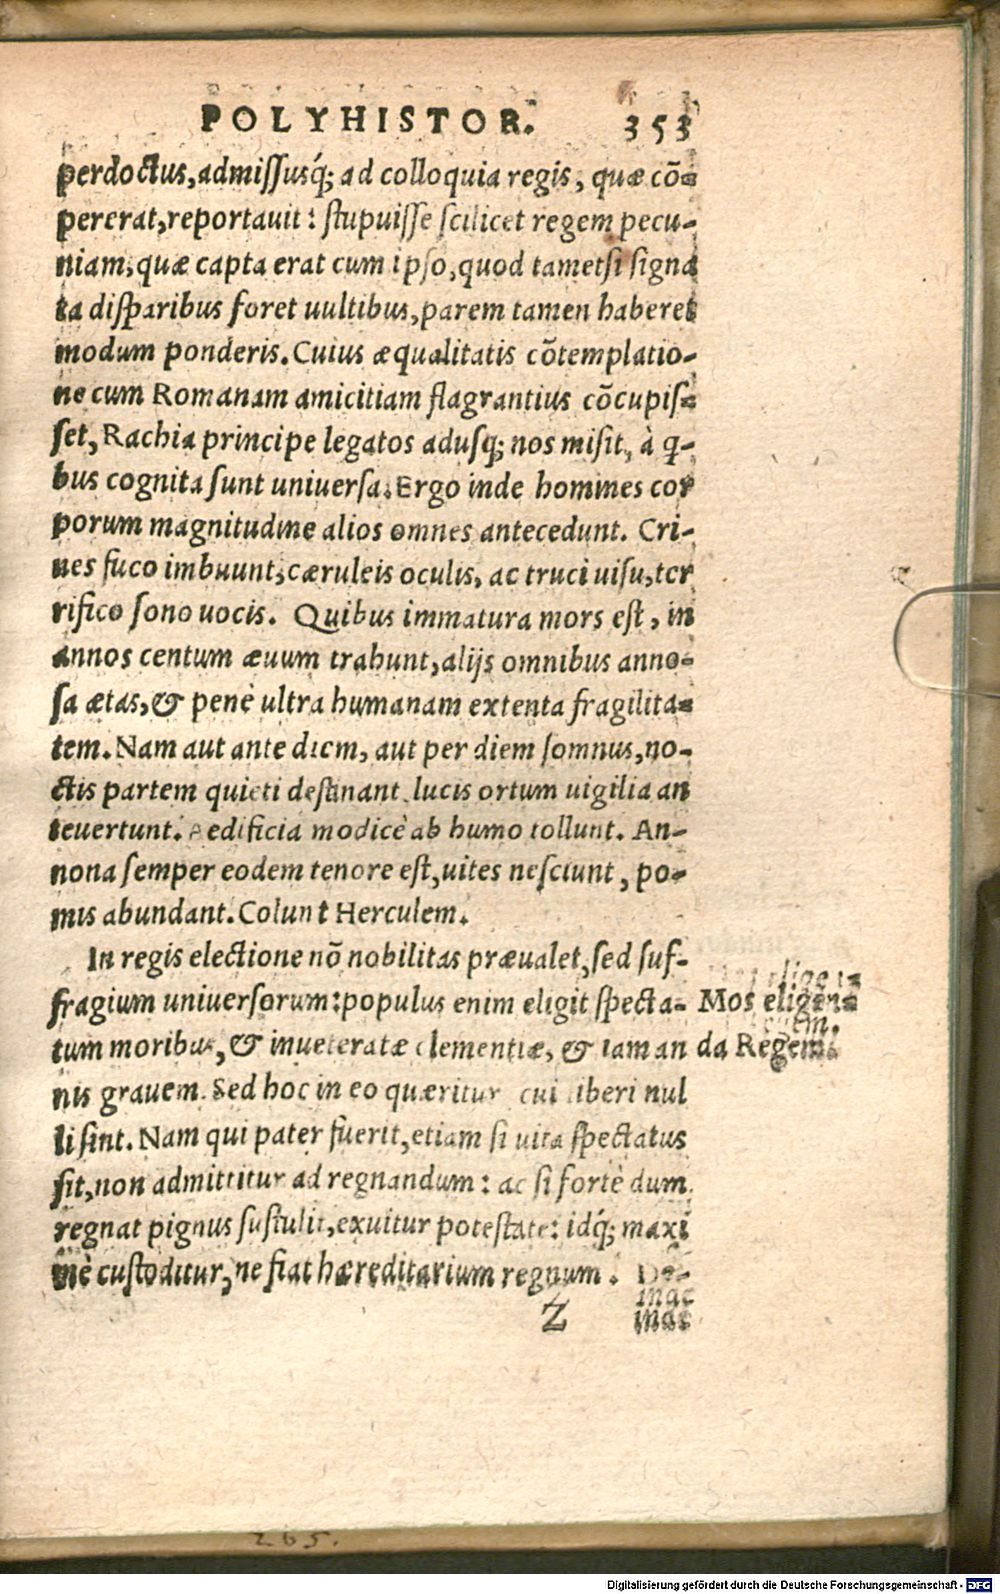 POLYHISTOR. 353
perdoctus,admissusq́; ad colloquia regis, quæ cõ-
pererat,reportauit: stupuisse scilicet regem pecu-
niam,quæ capta erat cum ipso,quod tametsi signa
ta disparibus foret uultibus,parem tamen haberet
modum ponderis.Cuius æqualitatis cõtemplatio-
ne cum Romanam amicitiam flagrantius cõcupis-
set, Rachia principe legatos adusq; nos misit, à q-
bus cognita sunt uniuersa.Ergo inde homines cor
porum magnitudine alios omnes antecedunt. Cri-
nes fuco imbuunt,cæruleis oculis, ac truci uisu,ter
rifico sono uocis. Quibus immatura mors est, in
annos centum æuum trahunt,alijs omnibus anno-
sa ætas,& penè ultra humanam extenta fragilita-
tem.Nam aut ante diem, aut per diem somnus,no-
ctis partem quieti destinant lucis ortum uigilia an
teuertunt. Aedificia modicè ab humo tollunt. An-
nona semper eodem tenore est,uites nesciunt, po-
mis abundant.Colunt Herculem.
In regis electione nõ nobilitas præualet,sed suf-
fragium uniuersorum:populus enim eligit specta-
tum moribus,& inueteratæ clementiæ, & iam an
nis grauem. Sed hoc in eo quæritur cui liberi nul
li sint. Nam qui pater fuerit,etiam si uita spectatus
sit,non admittitur ad regnandum: ac si fortè dum
regnat pignus sustulit,exuitur potestate: idq́; maxi
mè custoditur,ne fiat hæreditarium regnum. De-
Z mac
Mos eligen-
da Regem.
265.
Digitalisierung gefördert durch die Deutsche Forschungsgemeinschaft - DFG